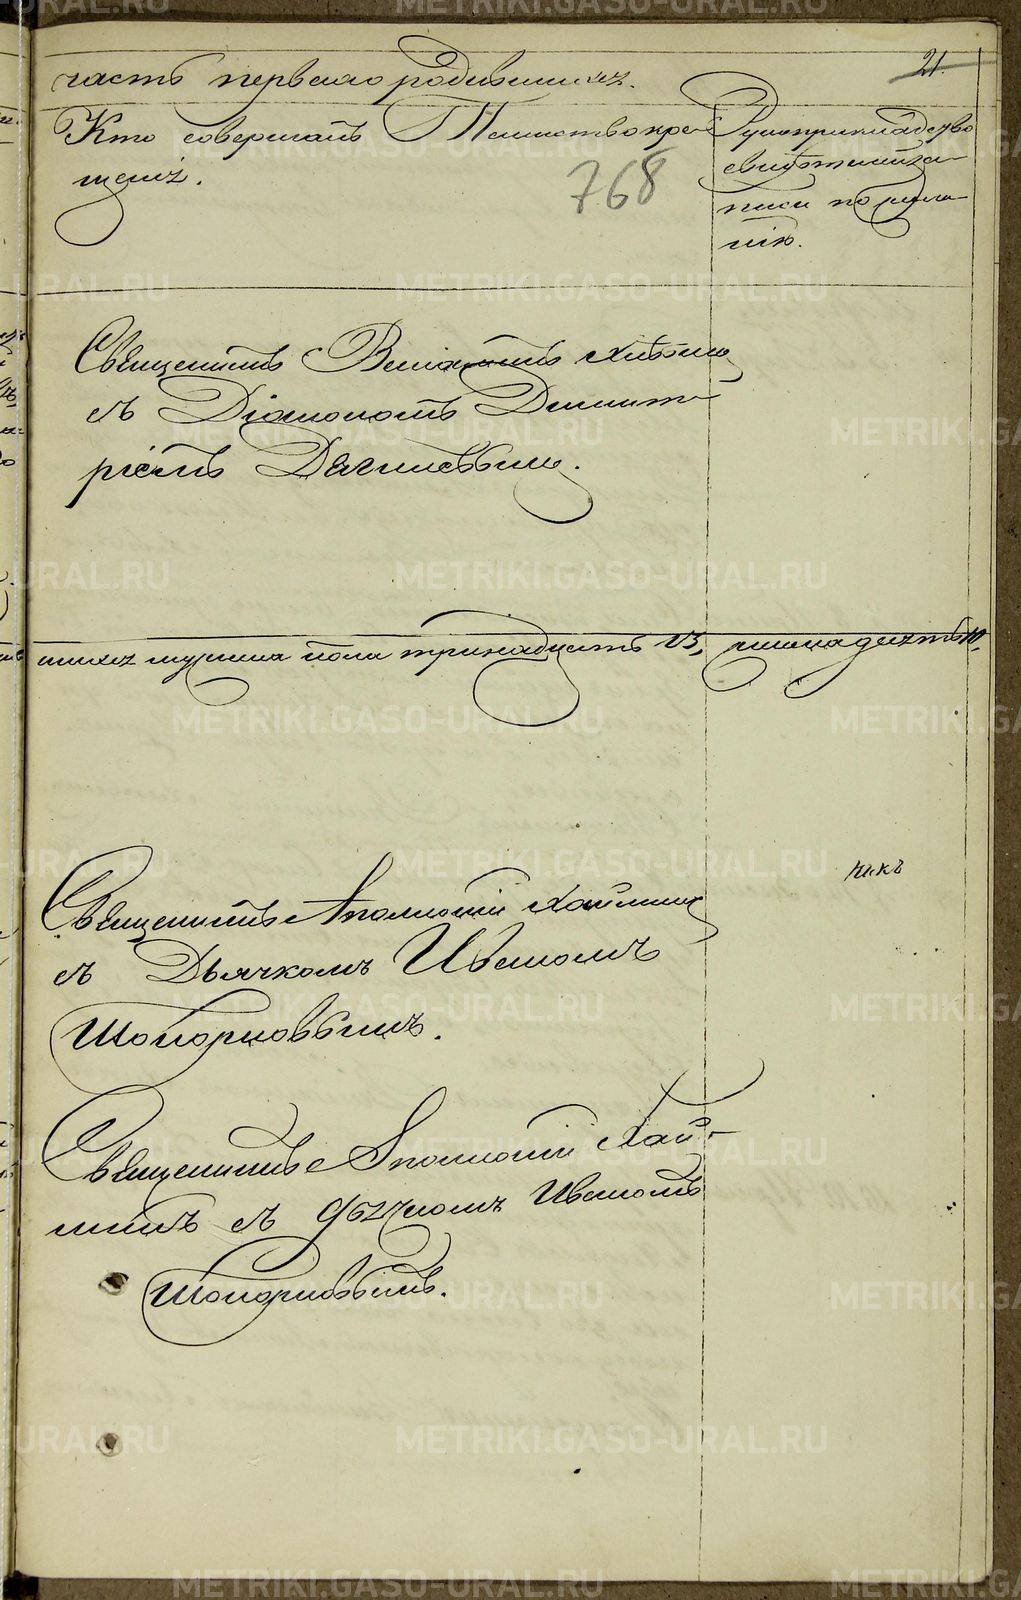 21.
часть первая о родившихся.
Кто совершалъ Таинство кре-
щенія.
768
Рукоприкладство
свидѣтелей за-
писи по жела-
нію.
Священникъ Веніаминъ
съ Діакономъ Димит-
ріемъ Дягилевымъ.
шихся мужеска пола тринадцать 13, женска десять 10.
никъ
Священникъ Аполлоній Хаймин
съ Дьячкомъ Иваномъ
Топорковымъ.
Священникъ Аполлоній Хай-
минъ съ Дьячкомъ Иваномъ
Топорковымъ.
METRIKI.GASO-URAL.RU